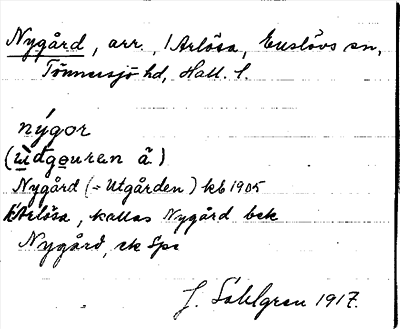 Nygård, arr., i Arlösa, Enslövs sn,
Tönnersjö hd, Hall. l.
nýgor
(ùdgøuren ä)
Nygård (= Utgården) kb 1905
i Arlösa, kallas Nygård bek
Nygård, ek Spe
J. Sahlgren 1917.